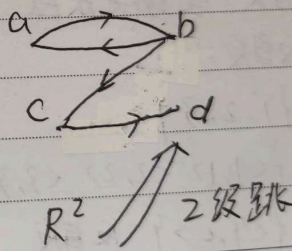 a b
c d
R² 2级跳